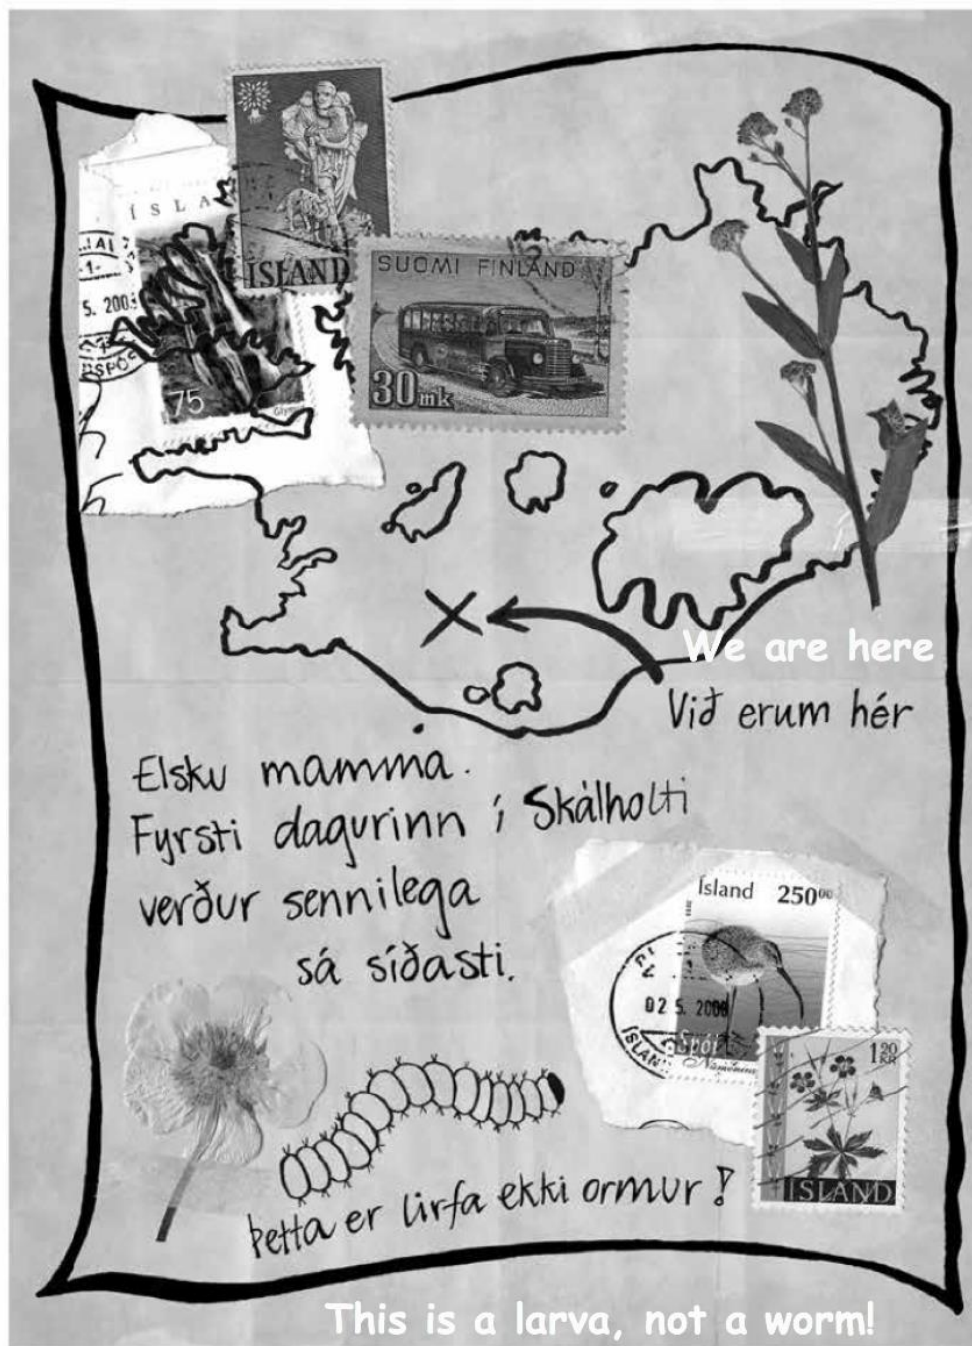 ÍSLA
5. 200
75
ÍSLAND
SUOMI FINLAND
30 mk
We are here
Við erum hér
Elsku mamma.
Fyrsti dagurinn í Skálholti
verður sennilega
sá síðasti.
Ísland 250⁰⁰
02 5. 2000
ÍSLAN
Spói
1 20
KR
ÍSLAND
Þetta er lirfa ekki ormur!
This is a larva, not a worm!